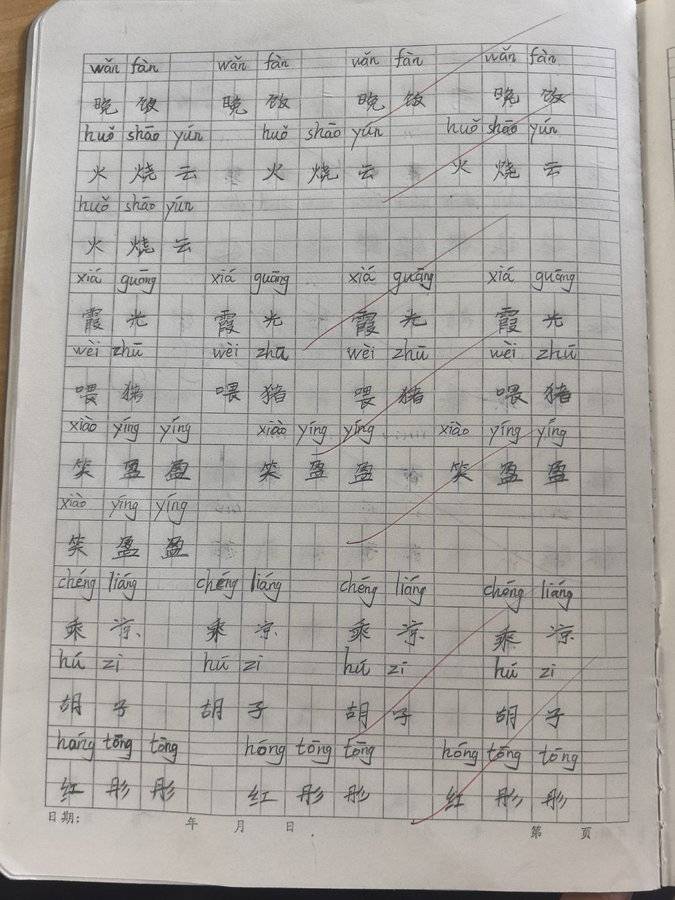 wǎn fàn wǎn fàn wǎn fàn wǎn fàn
晚饭 晚饭 晚饭 晚饭
huǒ shāo yún huǒ shāo yún huǒ shāo yún
火烧云 火烧云 火烧云
huǒ shāo yún
火烧云
xiá guāng xiá guāng xiá guāng xiá guāng
霞光 霞光 霞光 霞光
wèi zhū wèi zhū wèi zhū wèi zhū
喂猪 喂猪 喂猪 喂猪
xiào yíng yíng xiào yíng yíng xiào yíng yíng
笑盈盈 笑盈盈 笑盈盈
xiào yíng yíng
笑盈盈
chéng liáng chéng liáng chéng liáng chéng liáng
乘凉 乘凉 乘凉 乘凉
hú zi hú zi hú zi hú zi
胡子 胡子 胡子 胡子
hóng tōng tōng hóng tōng tōng hóng tōng tōng
红彤彤 红彤彤 红彤彤
日期: 年 月 日 第 页